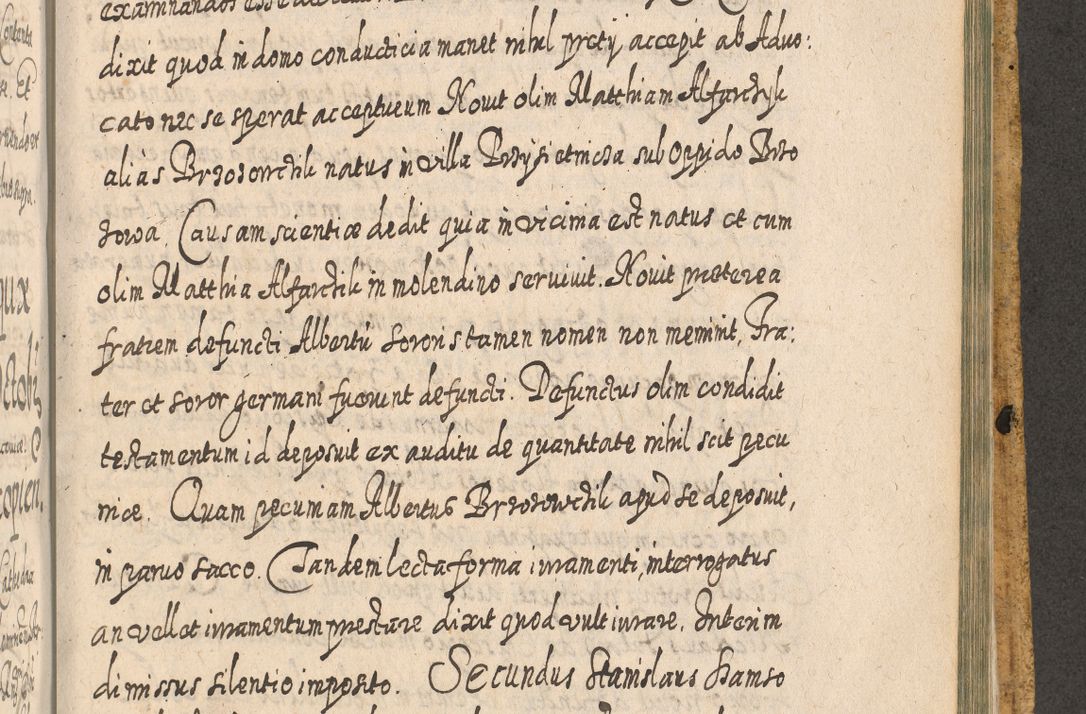 dixit quod in domo conducticia manet nihil prety accepit ab Advo:
cato nec se sperat accepturum Novit olim Matthiam Alfarski
alias Brzozowski natus in villa sub Oppido Brzo
zowa. Causam scientiæ dedit quia in vicinia est natus et cum
olim Matthia Alfarski in molendino servivit. Novit præterea
fratrem defuncti Albertū sororis tamen nomen non meminit, Fra:
ter et soror germani fuerunt defuncti. Defunctus olim condidit
testamentum id deposuit ex auditu de quantitate nihil scit pecu
niæ. Quam pecuniam Albertus Brzozowski apud se deposuit,
in parvo sacco. Tandem lecta forma iuramenti, interrogatus
an vellet iuramentum prestare dixit quod vult iurare. Interim
dimissus silentio imposito. Secundus Stanislaus